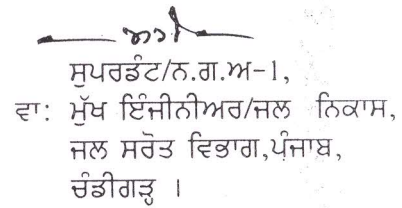 ਸੁਪਰਡੰਟ/ਨ.ਗ.ਅ-1,
ਵਾ: ਮੁੱਖ ਇੰਜੀਨੀਅਰ/ਜਲ ਨਿਕਾਸ,
ਜਲ ਸਰੋਤ ਵਿਭਾਗ,ਪੰਜਾਬ,
ਚੰਡੀਗੜ੍ਹ ।